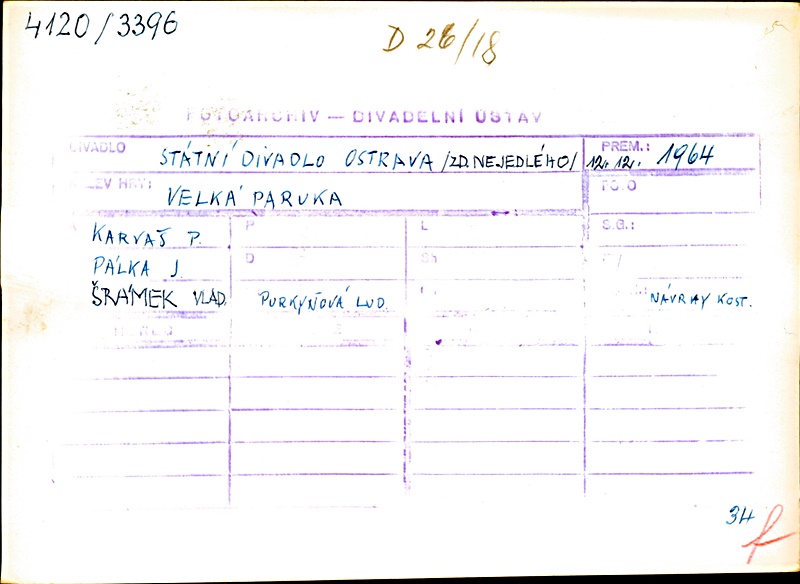 4120/3396
D 26/18
FOTOARCHIV — DIVADELNÍ ÚSTAV
DIVADLO STÁTNÍ DIVADLO OSTRAVA /ZD. NEJEDLÉHO/ PREM.: 12. 12. 1964
VELKÁ PARUKA
KARVAŠ P. P L S.G.:
PÁLKA J. D Sh
ŠRÁMEK VLAD. PURKYŇOVÁ LUD. NÁVRHY KOST.
34